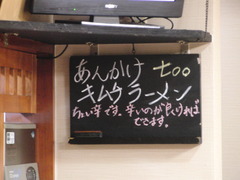 あんかけ 700
キムチラーメン
ちょい辛です。辛いのが良ければ
できます。